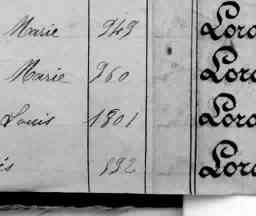 Marie 943 Lord
Marie 960 Lord
Louis 1301 Lord
is 892 Lord